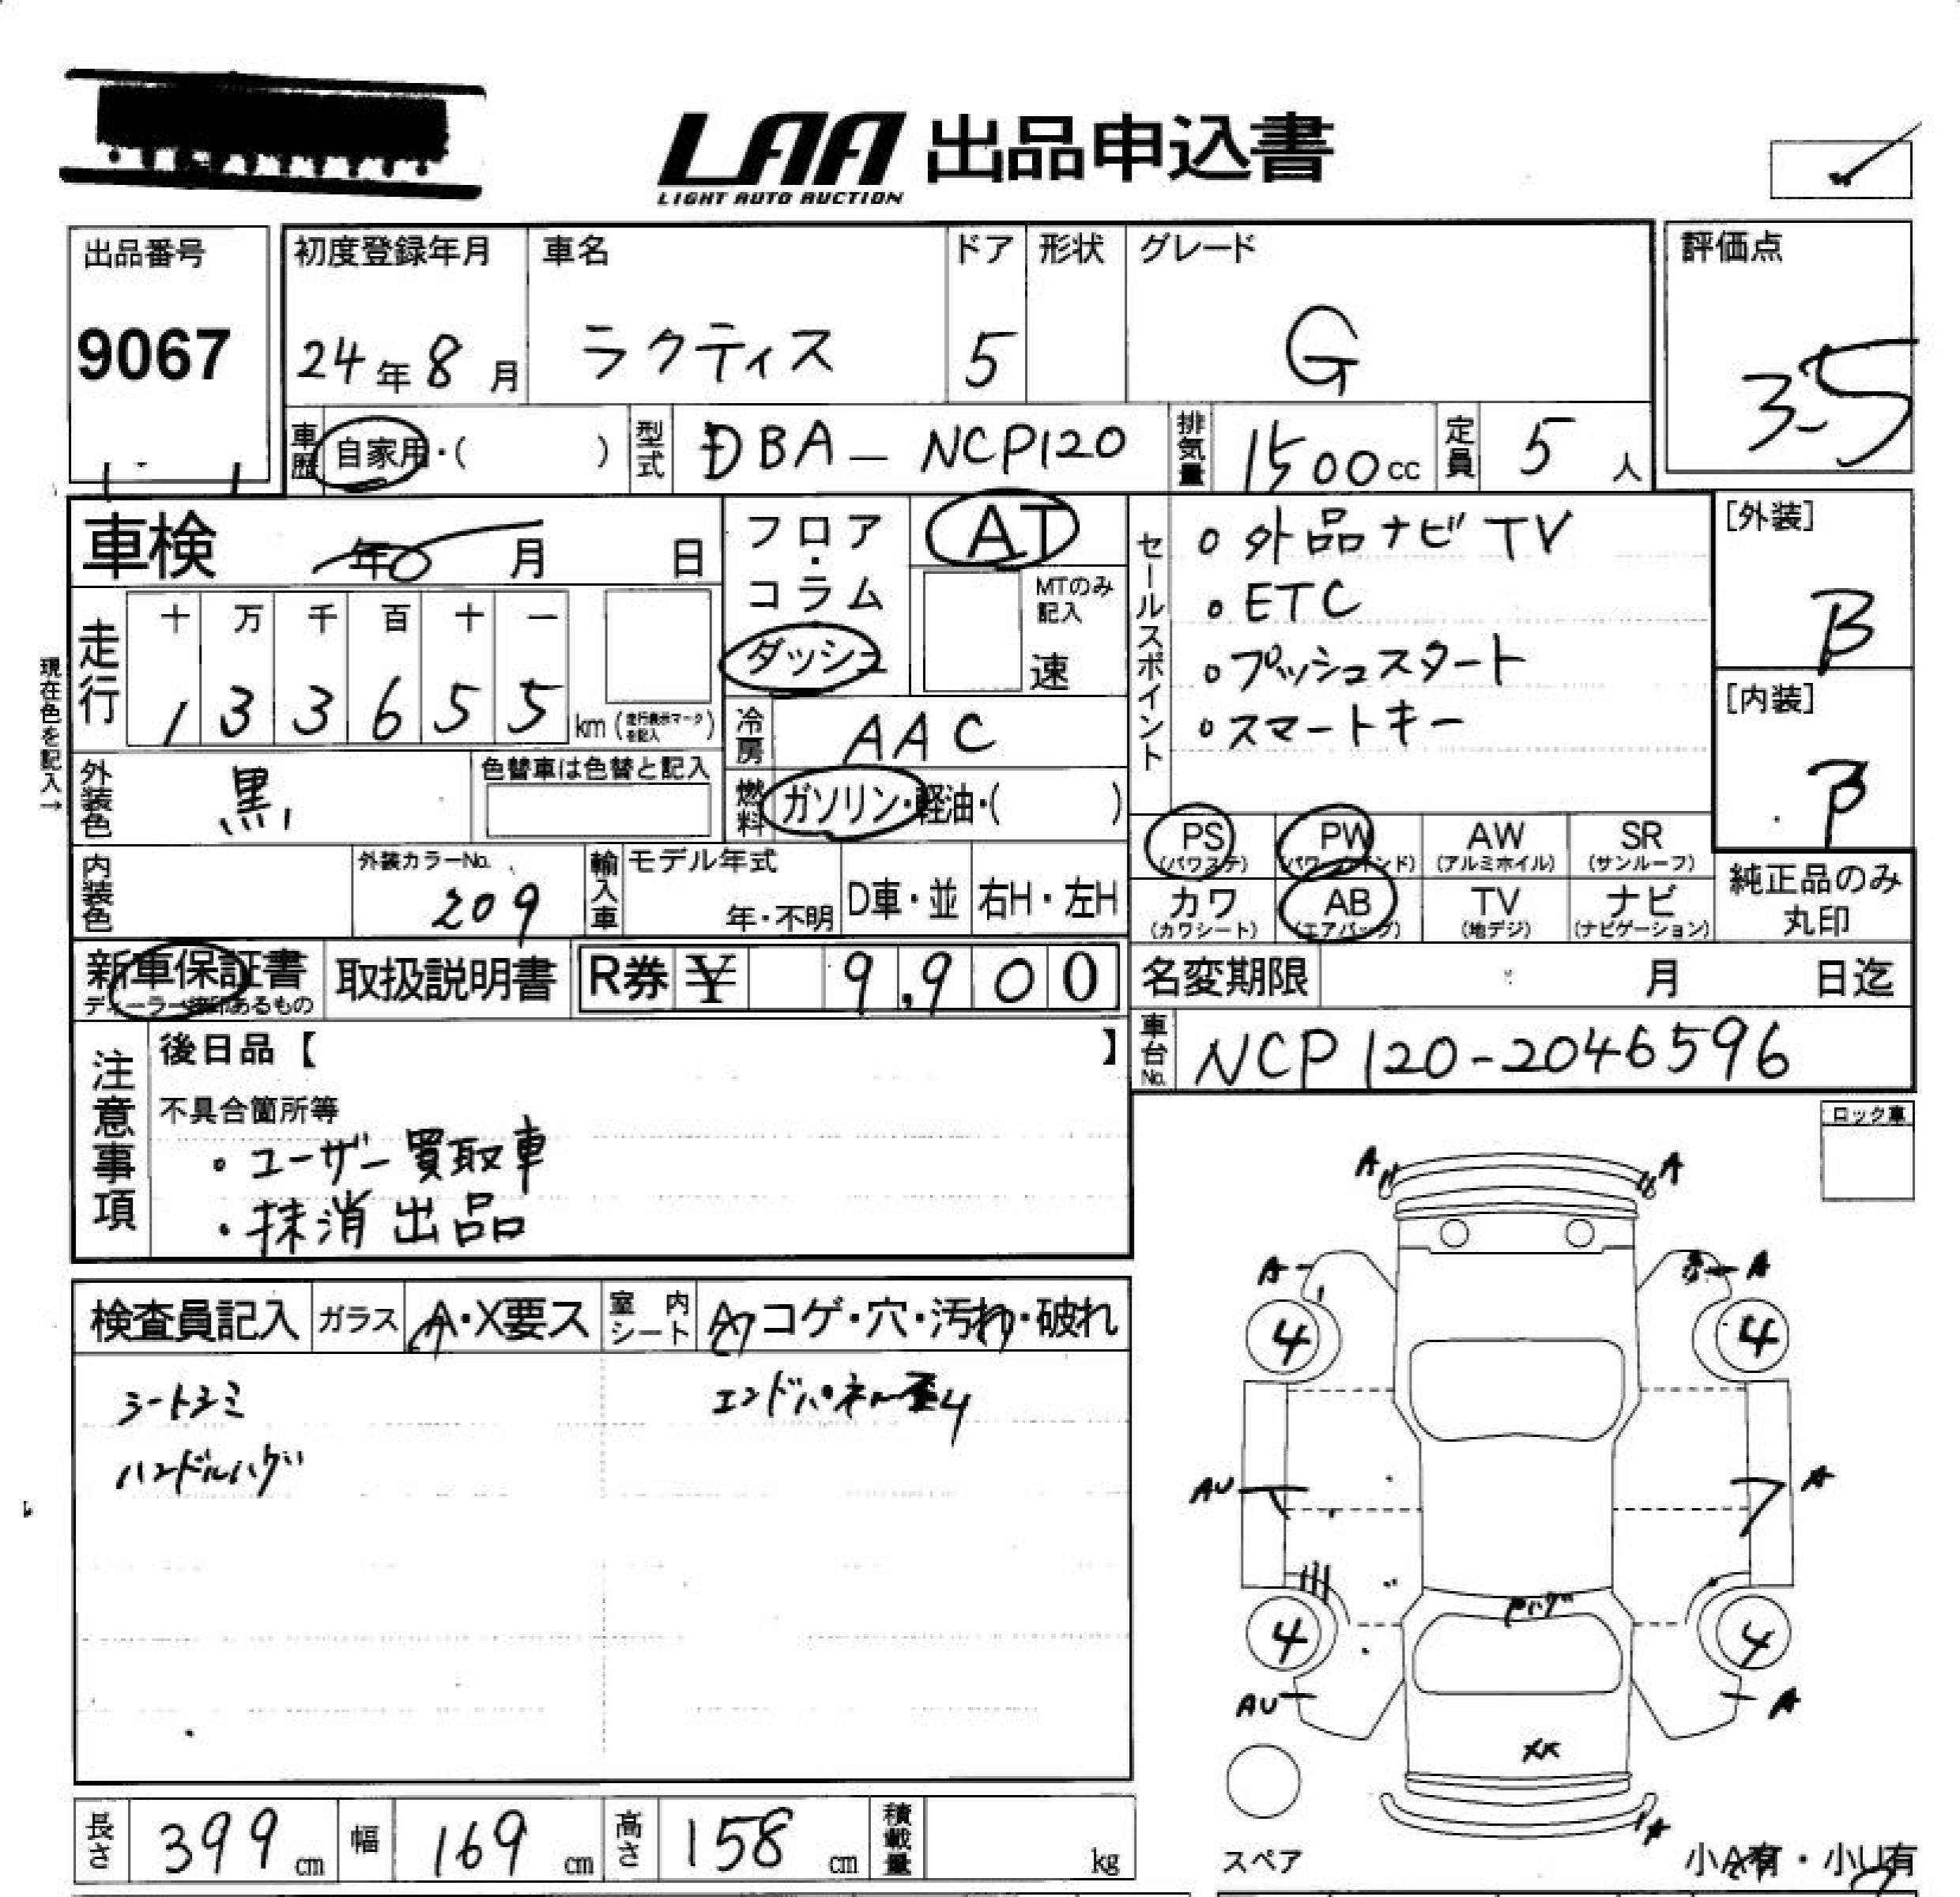 LAA 出品申込書
LIGHT AUTO AUCTION
出品番号 初度登録年月 車名 ドア 形状 グレード 評価点
9067 24年8月 ラクティス 5 G 3.5
車歴 自家用・( ) 型式 DBA-NCP120 排気量 1500cc 定員 5人
車検 年 月 日
フロア・コラム ダッシュ
AT
MTのみ記入 速
セールスポイント
・外品ナビTV
・ETC
・プッシュスタート
・スマートキー
[外装]
B
[内装]
B
現在色を記入→
走行 十 万 千 百 十 一
1 3 3 6 5 5 km (走行表示マークを記入)
冷房 AAC
外装色 黒 色替車は色替と記入
燃料 ガソリン・軽油・( )
PS (パワステ) PW (パワーウインド) AW (アルミホイル) SR (サンルーフ)
内装色 外装カラーNo. 209 輸入車 モデル年式 年・不明 D車・並 右H・左H
カワ (カワシート) AB (エアバッグ) TV (地デジ) ナビ (ナビゲーション)
純正品のみ丸印
新車保証書 取扱説明書 R券 ¥ 9,900
名変期限 月 日迄
車台No. NCP120-2046596
注意事項
後日品【 】
不具合箇所等
・ユーザー買取車
・抹消出品
ロック車
A A
A A
4 4
検査員記入 ガラス A・X要ス 室内シート A コゲ・穴・汚れ・破れ
シートシミ エンドパネル歪4
ハンドルハゲ
AU A
4 4
AU A
XX
長さ 399cm 幅 169cm 高さ 158cm 積載量 kg
スペア 小A有・小U有